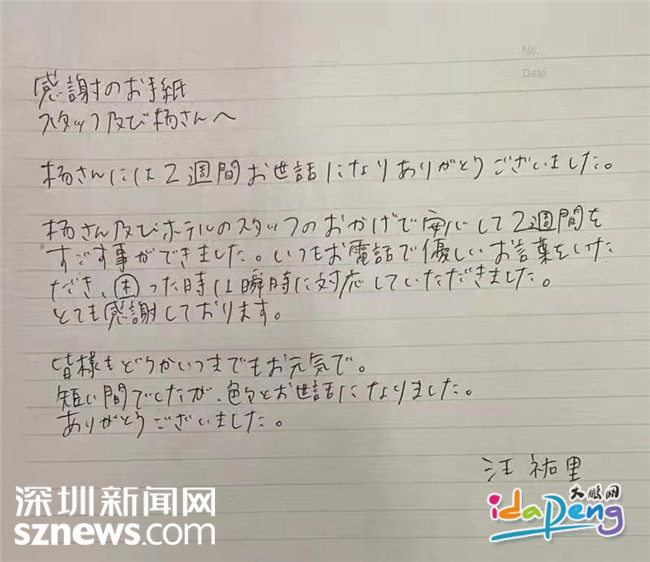 No.
Date
感謝のお手紙
スタッフ及び杨さんへ
杨さんには2週間お世話になりありがとうございました。
杨さん及びホテルのスタッフのおかげで安心して2週間を
すごす事ができました。いつもお電話で優しいお言葉をいた
だき、困った時は瞬時に対応していただきました。
とても感謝しております。
皆様もどうかいつまでもお元気で。
短い間でしたが、色々とお世話になりました。
ありがとうございました。
汪 祐里
深圳新闻网
sznews.com
大鹏网
idapeng